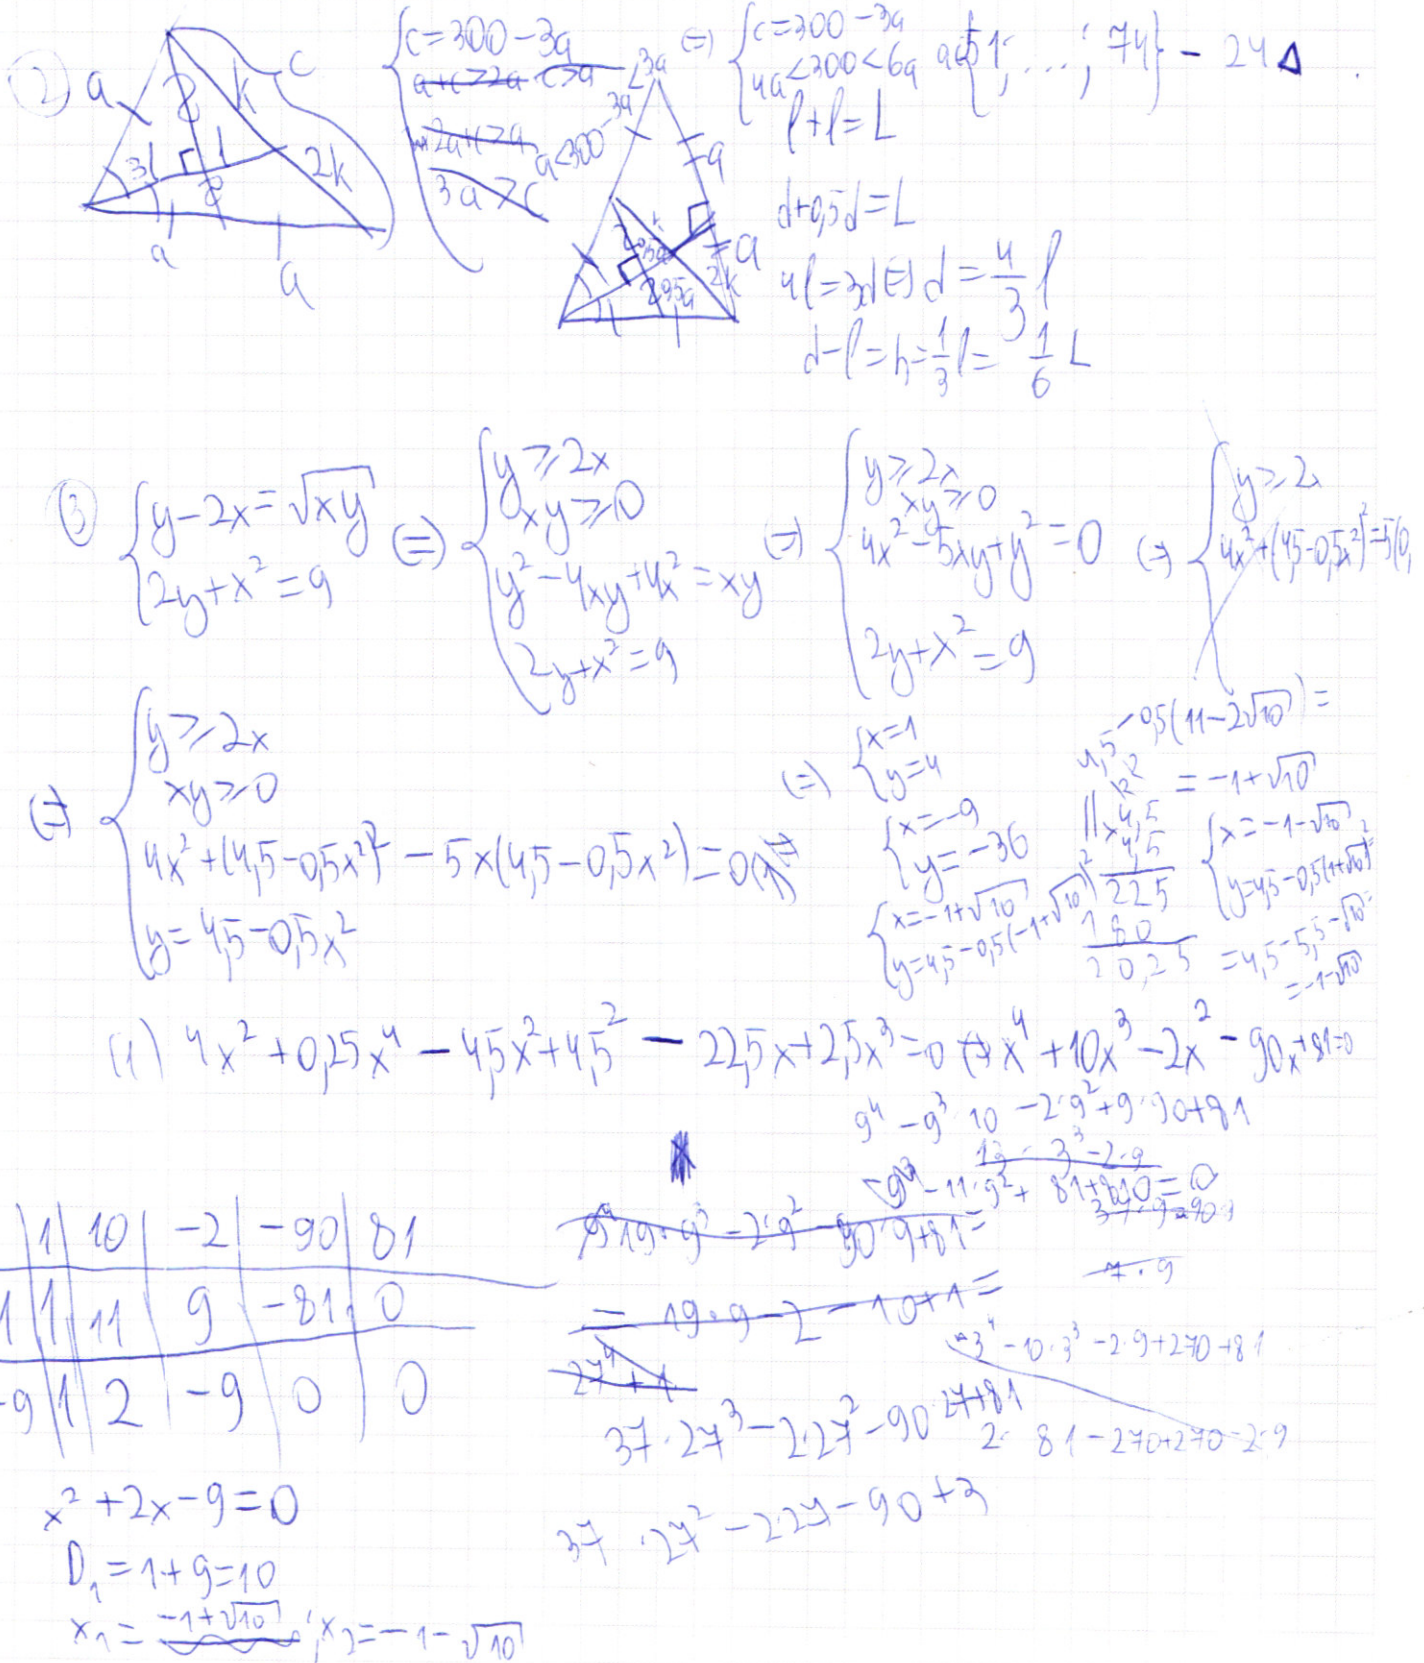 2) a k c 2k 3l l a a
{ c=300-3a
a+c>2a c>a
2a+c>a a<300-3a<3a
3a>c
⇔ { c=300-3a
4a<300<6a a∈{51; ...; 74} - 24 Δ
l+l=L
d+0,5d=L
4l=3d ⇔ d=4/3 l
d-l=h=1/3 l= 1/6 L
a a 0,5a 0,5a 2k l
3) { y-2x=√xy
2y+x²=9
⇔ { y≥2x
xy≥0
y²-4xy+4x²=xy
2y+x²=9
⇔ { y≥2x
xy≥0
4x²-5xy+y²=0
2y+x²=9
⇔ { y≥2x
4x²+(4,5-0,5x²)²=5(0,
⇔ { y≥2x
xy≥0
4x²+(4,5-0,5x²)²-5x(4,5-0,5x²)=0 (1) ⇔
y=4,5-0,5x²
⇔ { x=1
y=4
{ x=-9
y=-36
{ x=-1+√10
y=4,5-0,5(-1+√10)²
4,5-0,5(11-2√10)=
=-1+√10
x 4,5
4,5
225
180
20,25
{ x=-1-√10
y=4,5-0,5(1+√10)²=
=4,5-5,5-√10=
=-1-√10
(1) 4x²+0,25x⁴-4,5x²+4,5²-22,5x+2,5x³=0 ⇔ x⁴+10x³-2x²-90x+81=0
9⁴-9³·10-2·9²+9·90+81
-9³-11·9²+81+810=0
1 10 -2 -90 81
1 1 11 9 -81 0
-9 1 2 -9 0 0
=19·9-2-10+1=
27⁴+1
7·9
-3⁴-10·3³-2·9+270+81
37·27³-2·27²-90·27+81
2·81-270+270-2·9
37·27²-2·27-90+3
x²+2x-9=0
D₁=1+9=10
x₁=-1+√10; x₂=-1-√10